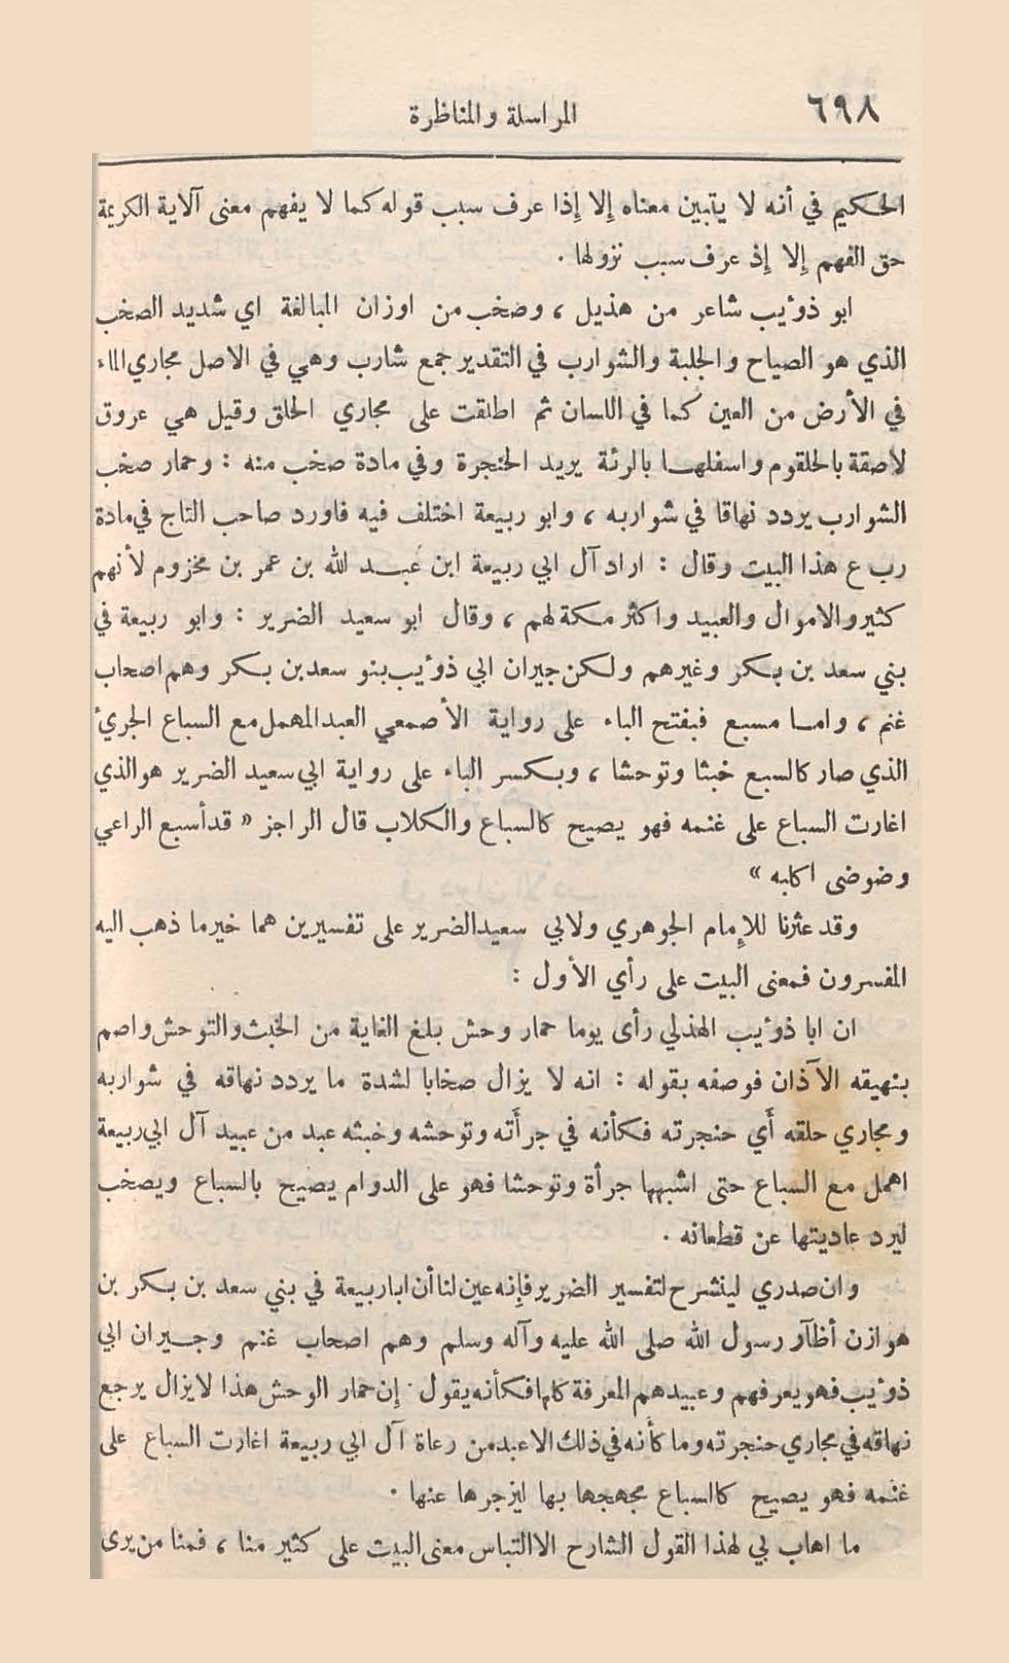 ٦٩٨
المراسلة والمناظرة
الحكيم في أنه لا يتبين معناه إلا إذا عرف سبب قوله كما لا يفهم معنى آلاية الكريمة
حق الفهم إلا إذ عرف سبب نزولها .
ابو ذوئيب شاعر من هذيل ، وضخب من اوزان المبالغة اي شديد الصخب
الذي هو الصياح والجلبة والشوارب في التقدير جمع شارب وهي في الاصل مجاري الماء
في الأرض من العين كما في اللسان ثم اطلقت على مجاري الحلق وقيل هي عروق
لاصقة بالحلقوم واسفلها بالرئة يريد الحنجرة وفي مادة صخب منه : وحمار صخب
الشوارب يردد نهاقا في شواربه ، وابو ربيعة اختلف فيه فاورد صاحب التاج في مادة
رب ع هذا البيت وقال : اراد آل ابي ربيعة ابن عبد الله بن عمر بن مخزوم لأنهم
كثيرو الاموال والعبيد واكثر مكة لهم ، وقال ابو سعيد الضرير : وابو ربيعة في
بني سعد بن بكر وغيرهم ولكن جيران ابي ذوئيب بنو سعد بن بكر وهم اصحاب
غنم ، واما مسبع فبفتح الباء على رواية الأصمعي العبد المهمل مع السباع الجريء
الذي صار كالسبع خبثا وتوحشا ، وبكسر الباء على رواية ابي سعيد الضرير هو الذي
اغارت السباع على غنمه فهو يصيح كالسباع والكلاب قال الراجز « قد أسبع الراعي
وضوضى اكلبه »
وقد عثرنا للإمام الجوهري ولابي سعيد الضرير على تفسيرين هما خير ما ذهب اليه
المفسرون فمعنى البيت على رأي الأول :
ان ابا ذوئيب الهذلي رأى يوما حمار وحش بلغ الغاية من الخبث والتوحش واصم
بنهيقه الآذان فوصفه بقوله : انه لا يزال صخابا لشدة ما يردد نهاقه في شواربه
ومجاري حلقه أي حنجرته فكأنه في جرأته وتوحشه وخبثه عبد من عبيد آل ابي ربيعة
اهمل مع السباع حتى اشبهها جرأة وتوحشا فهو على الدوام يصيح بالسباع ويصخب
ليرد عاديتها عن قطعانه .
وان صدري لينشرح لتفسير الضرير فإنه عين لنا أن ابا ربيعة في بني سعد بن بكر بن
هوازن أظآر رسول الله صلى الله عليه وآله وسلم وهم اصحاب غنم وجيران ابي
ذوئيب فهو يعرفهم وعبيدهم المعرفة كلها فكأنه يقول إن حمار الوحش هذا لا يزال يرجع
نهاقه في مجاري حنجرته وما كأنه في ذلك الا عبد من رعاة آل ابي ربيعة اغارت السباع على
غنمه فهو يصيح كالسباع مجهجها بها ليزجرها عنها .
ما اهاب بي لهذا القول الشارح الا التباس معنى البيت على كثير منا ، فمنا من يرى